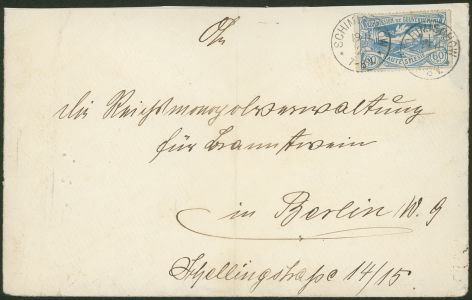 An
die Reichsmonopolverwaltung
für Branntwein
in Berlin W. 9
Schellingstraße 14/15